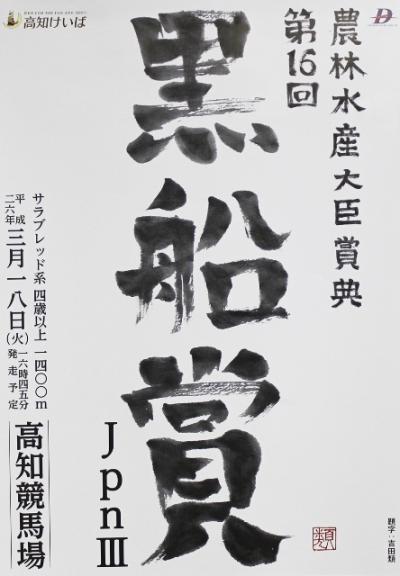 高知けいば
農林水産大臣賞典
第16回
黒船賞
JpnⅢ
サラブレッド系 四歳以上 一四〇〇m
平成二六年 三月一八日(火) 一六時四五分発走予定
高知競馬場
題字:吉田類